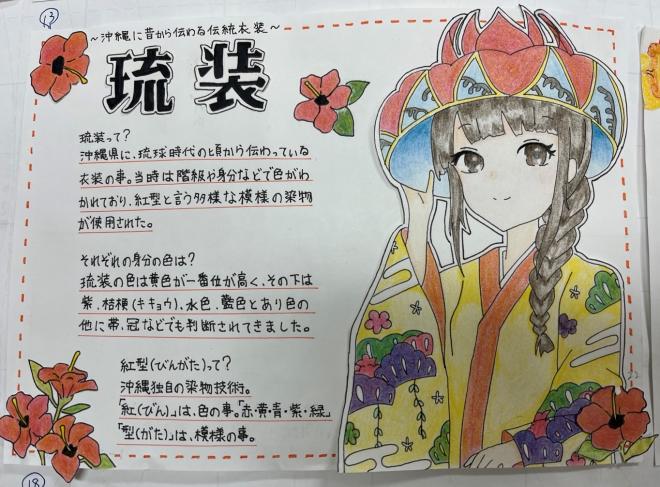 13
~沖縄に昔から伝わる伝統衣装~
琉装
琉装って?
沖縄県に、琉球時代の頃から伝わっている
衣装の事。当時は階級や身分などで色がわ
かれており、紅型と言う多様な模様の染物
が使用された。
それぞれの身分の色は?
琉装の色は黄色が一番位が高く、その下は
紫、桔梗(キキョウ)、水色、藍色とあり色の
他に帯、冠などでも判断されてきました。
紅型(びんがた)って?
沖縄独自の染物技術。
「紅(びん)」は、色の事。「赤・黄・青・紫・緑」
「型(がた)」は、模様の事。
18